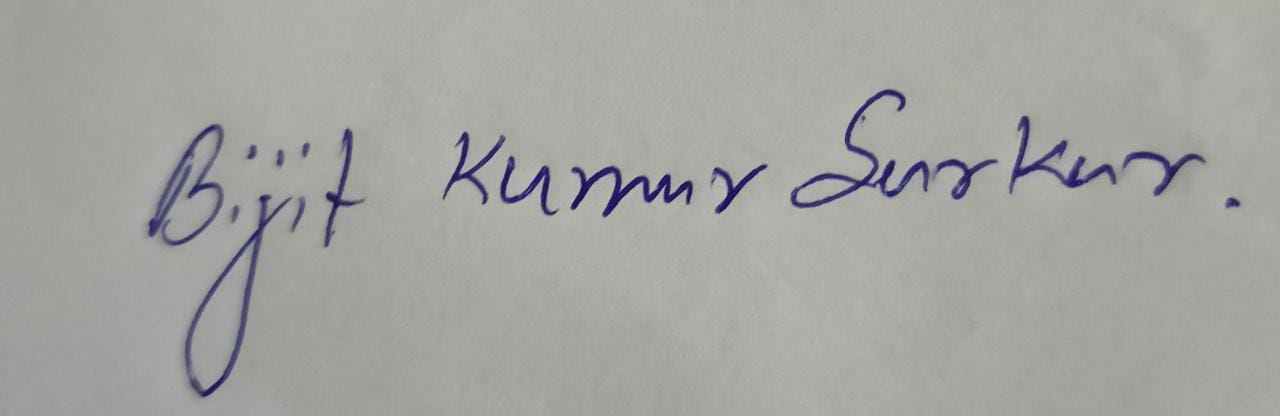 Bijit Kumar Sarkar.